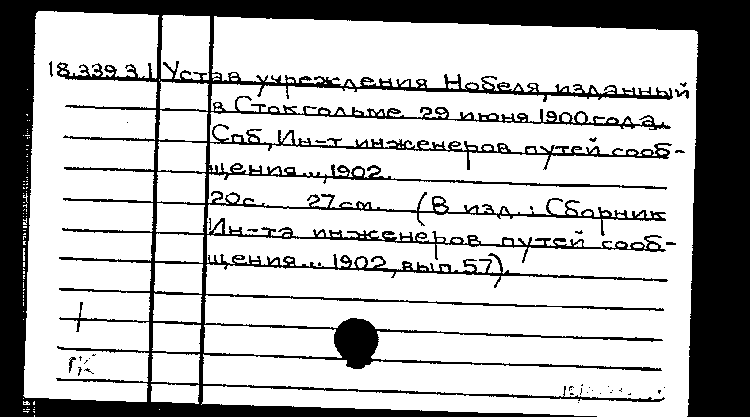 18.339.3.1 Устав учреждения Нобеля, изданный
в Стокгольме 29 июня 1900 года.
Спб, Ин-т инженеров путей сооб-
щения..., 1902.
20с. 27см. (В изд.: Сборник
Ин-та инженеров путей сооб-
щения... 1902, вып. 57).
ГК